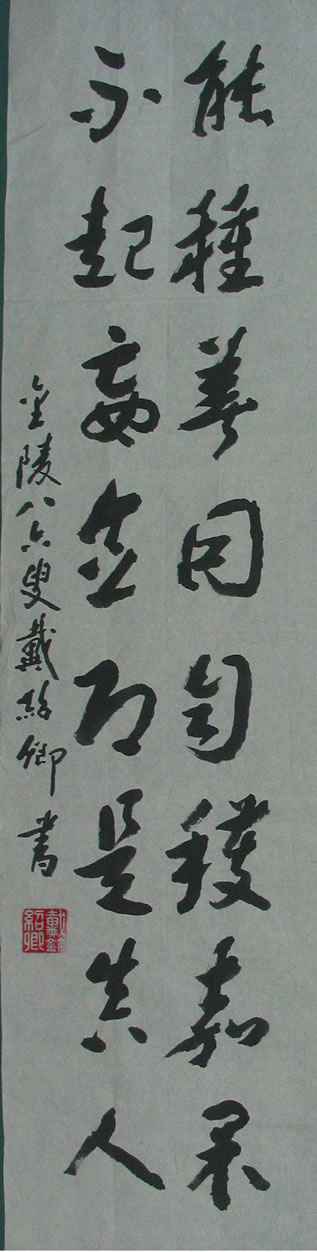 能種善因自穫嘉果
不起妄念即是真人
金陵八六叟戴紹卿書
戴紹卿